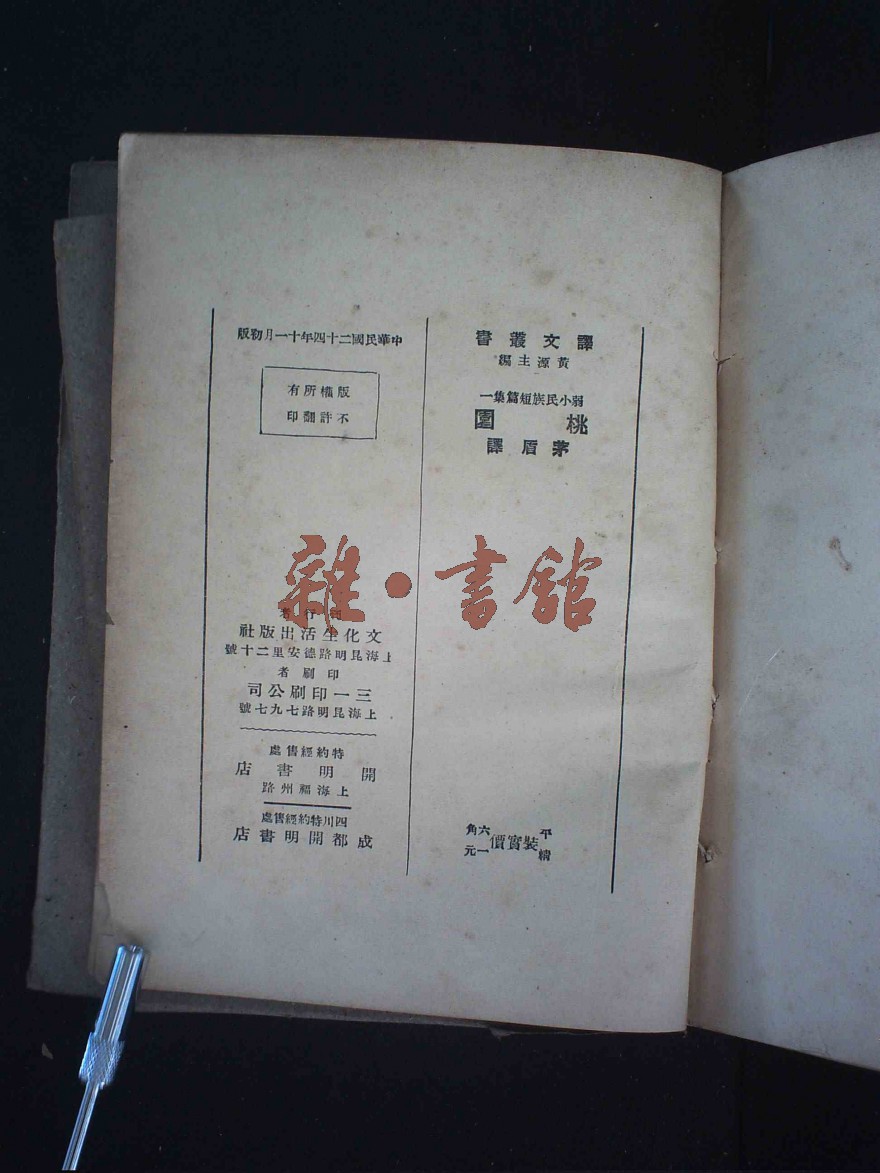 譯文叢書
黃源主編
弱小民族短篇集一
桃園
茅盾譯
平裝實價六角
精裝實價一元
中華民國二十四年十一月初版
版權所有
不許翻印
刊行者
文化生活出版社
上海昆明路德安里二十號
印刷者
三一印刷公司
上海昆明路七九七號
特約經售處
開明書店
上海福州路
四川特約經售處
成都開明書店
雜·書館